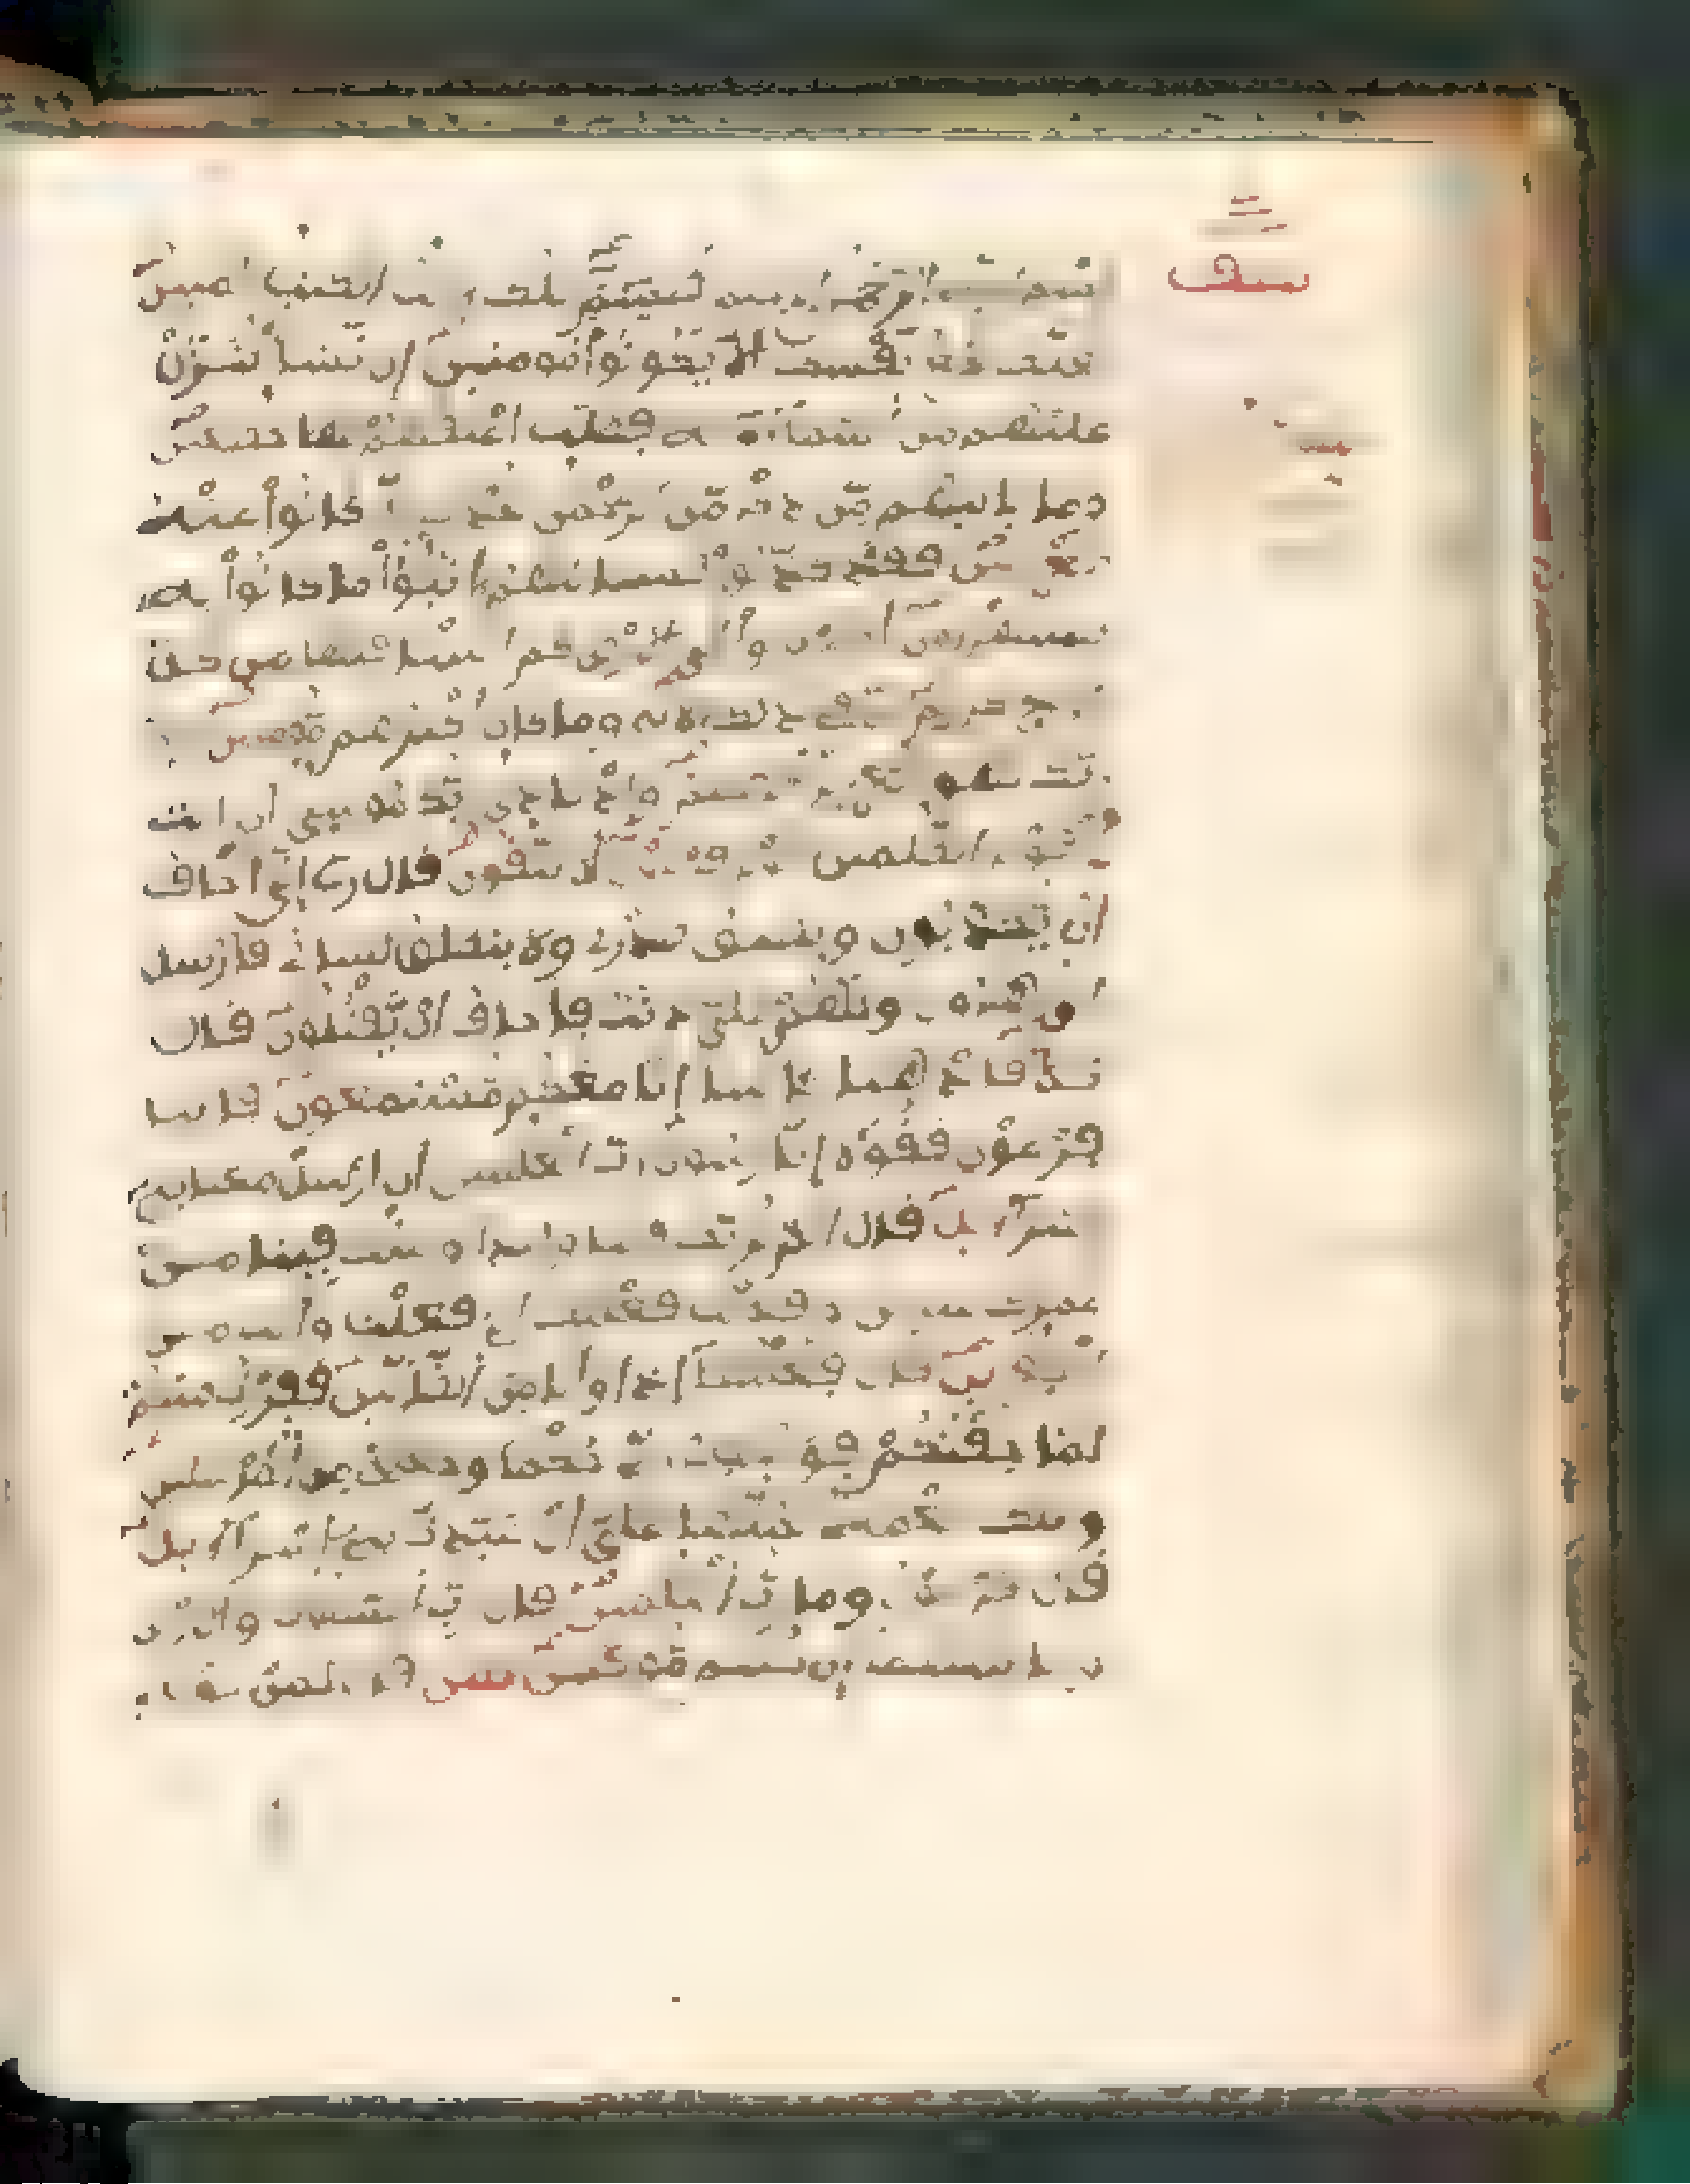 الرحمن الرحيم طسم تلك ايت الكتب المبين
نفسك الا يكونوا مومنين ان نشا ننزل
عليهم من السماء اية فظلت اعنقهم لها خضعين
وما ياتيهم من ذكر من الرحمن محدث الا كانوا عنه
معرضين فقد كذبوا فسياتيهم انبوا ما كانوا به
يستهزءون اولم يروا الى الارض كم انبتنا فيها من كل
زوج كريم ان في ذلك لاية وما كان اكثرهم مومنين
ربك لهو العزيز الرحيم واذ نادى ربك موسى ان ايت
القوم الظلمين قوم فرعون الا يتقون قال رب اني اخاف
ان يكذبون ويضيق صدري ولا ينطلق لساني فارسل
الى هرون ولهم علي ذنب فاخاف ان يقتلون قال
كلا فاذهبا بايتنا انا معكم مستمعون فاتيا
فرعون فقولا انا رسول رب العلمين ان ارسل معنا بني
اسراءيل قال الم نربك فينا وليدا ولبثت فينا من
عمرك سنين وفعلت فعلتك التي فعلت وانت من
الكفرين قال فعلتها اذا وانا من الضالين ففررت منكم
لما خفتكم فوهب لي ربي حكما وجعلني من المرسلين
وتلك نعمة تمنها علي ان عبدت بني اسراءيل
قال فرعون وما رب العلمين قال رب السموت والارض
وما بينهما ان كنتم موقنين قال لمن حوله